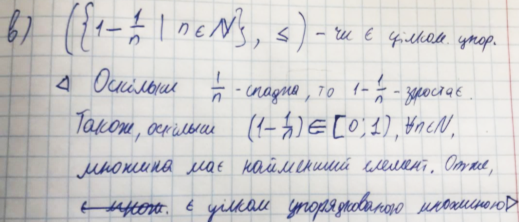 в) ({1 - 1/n | n ∈ N}, ≤) - чи є цілком. упор.
◁ Оскільки 1/n - спадна, то 1 - 1/n - зростає.
Також, оскільки (1 - 1/n) ∈ [0; 1), ∀n∈N,
множина має найменший елемент. Отже,
є цілком упорядкованою множиною ▷